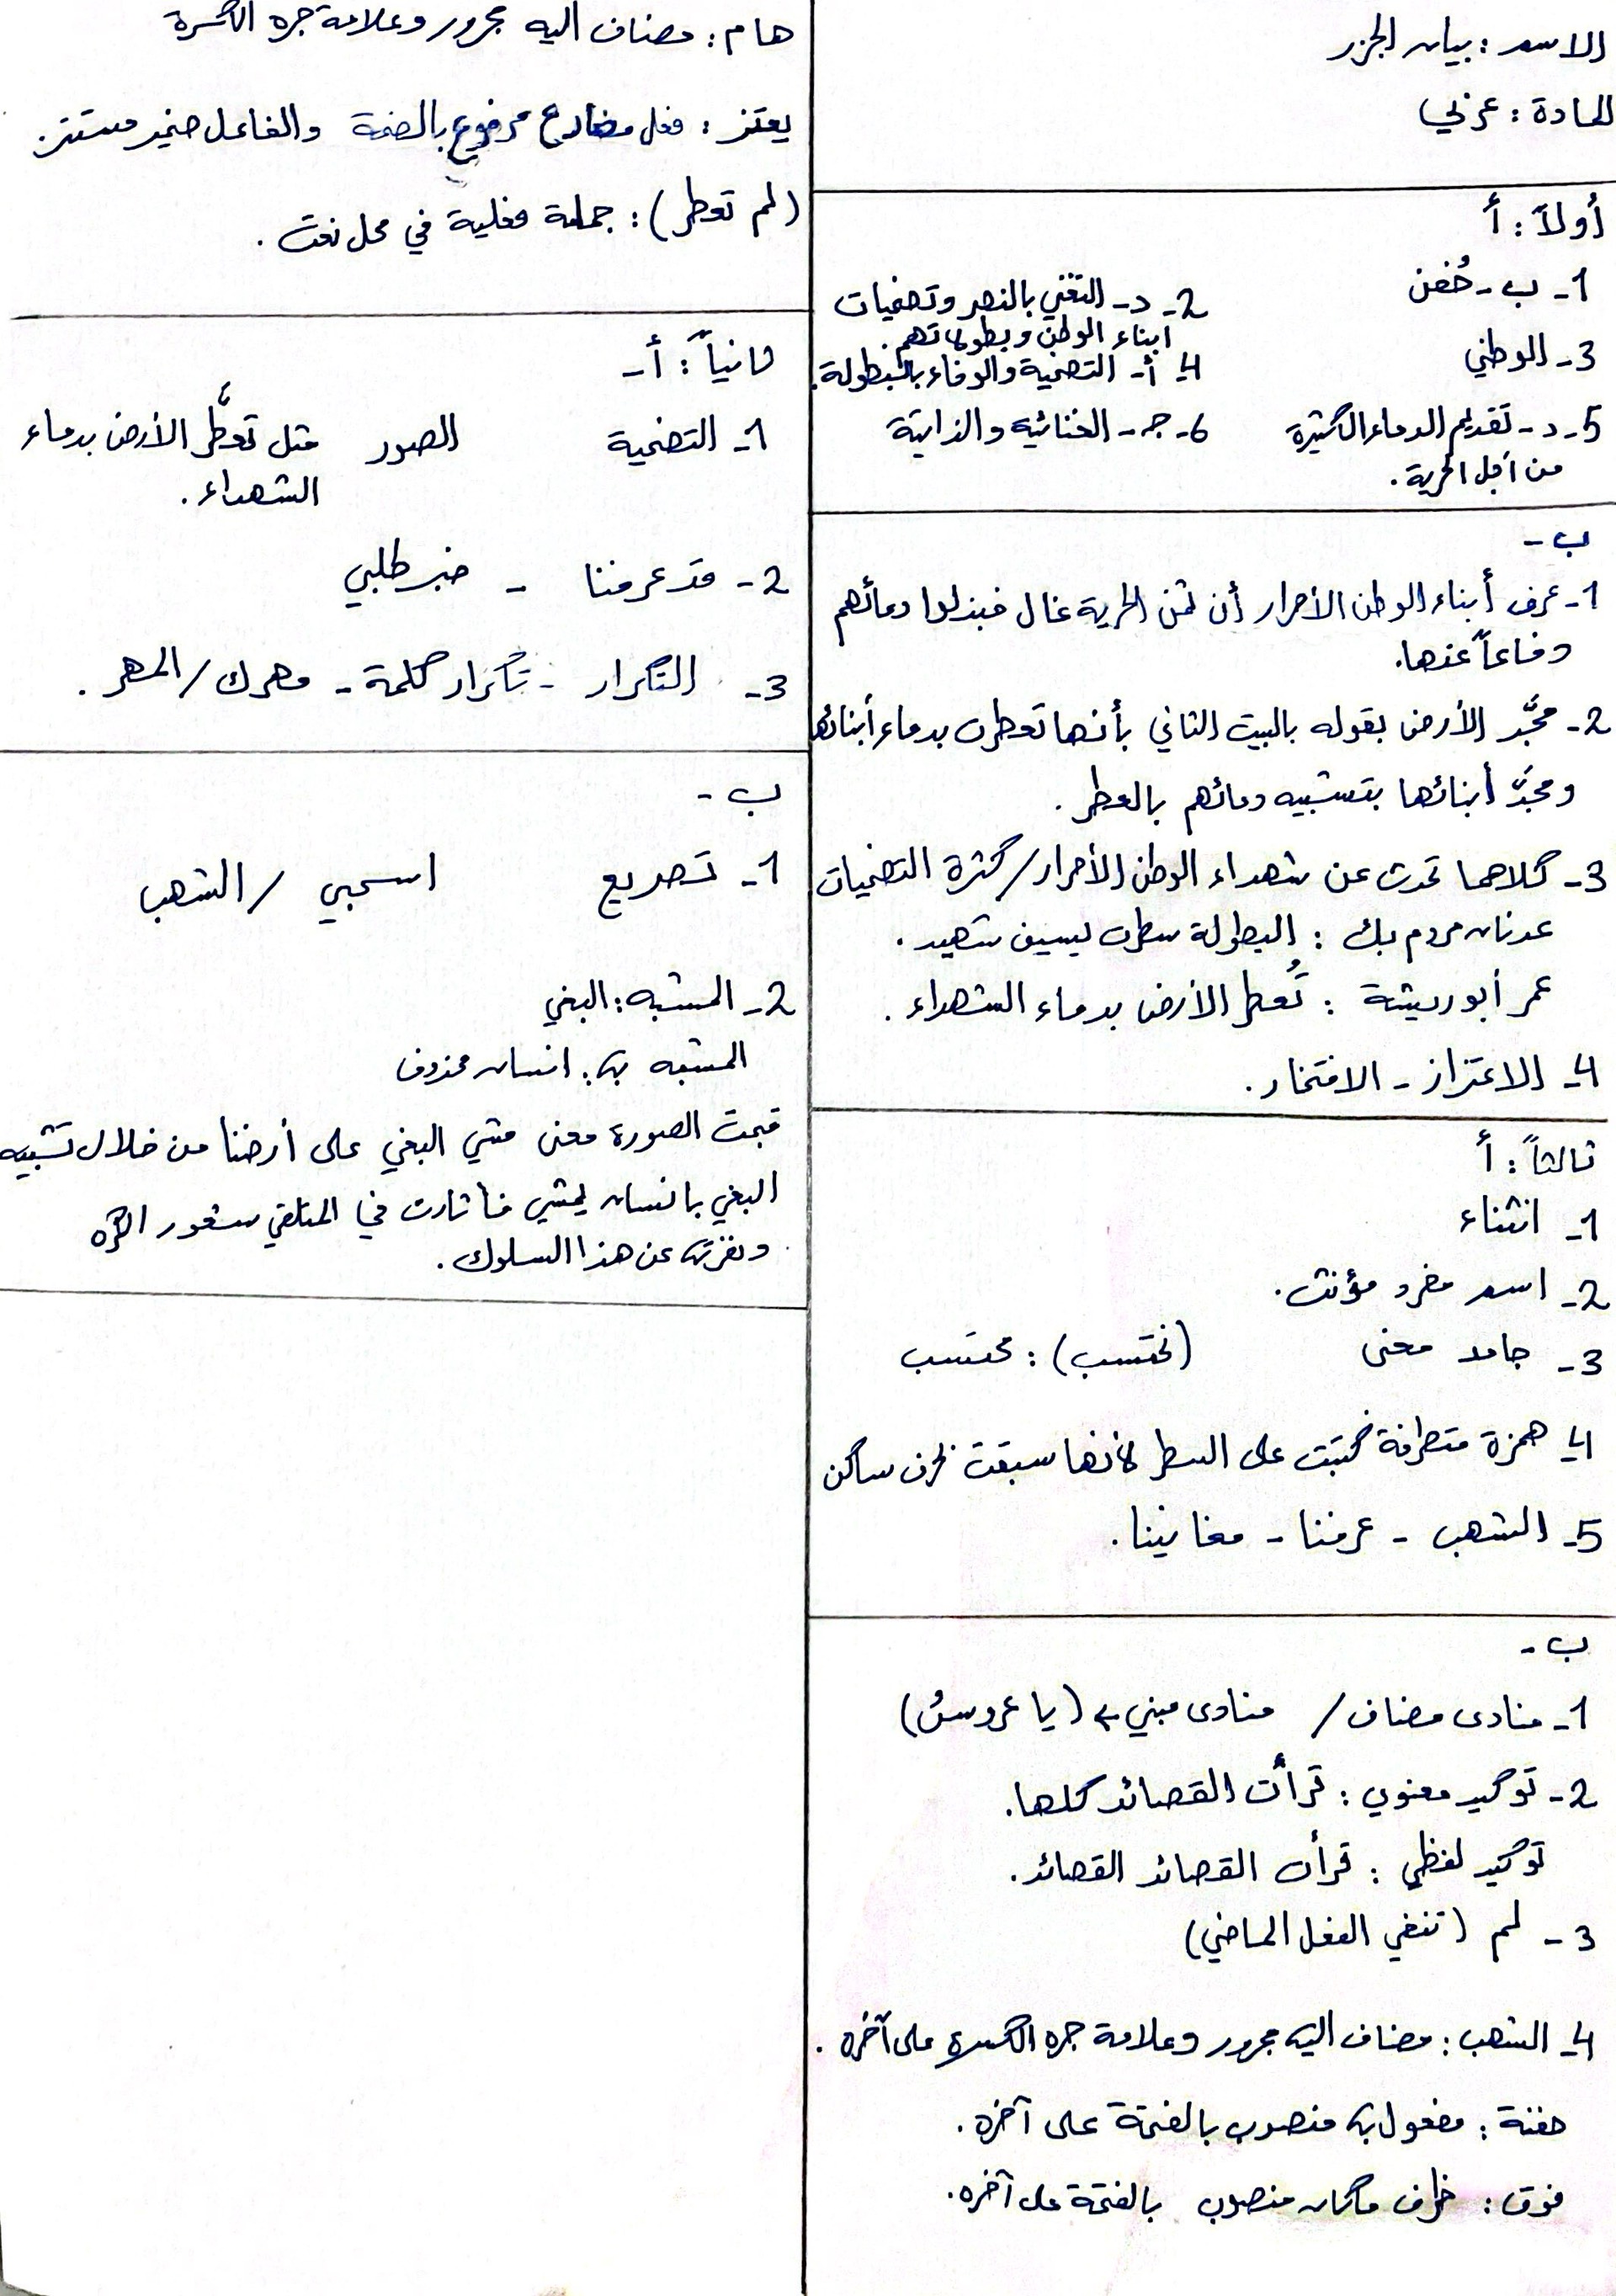 الاسم : بيان الجزر
المادة : عربي
أولاً : أ
1- ب - حُفن
2- د - التغني بالنصر وتضحيات
ابناء الوطن وبطولاتهم .
3- الوطني
4- أ- التضحية والوفاء بالبطولة .
5- د - تقديم الدماء الكثيرة
من أجل الحرية .
6- جـ - الغنائية والذاتية
ب -
1- عرف أبناء الوطن الأحرار أن ثمن الحرية غال فبذلوا دمائهم
دفاعاً عنها .
2- مجَّد الأرض بقوله بالبيت الثاني بأنها تعطرت بدماء أبنائها
ومجَّد أبنائها بتشبيه دمائهم بالعطر .
3- كلاهما تحدث عن شهداء الوطن الأحرار / كثرة التضحيات
عدنان مردم بك : البطولة سطرت بسيف شهيد .
عمر أبو ريشة : تُعطر الأرض بدماء الشهداء .
4- الاعتزاز - الافتخار .
ثالثاً : أ
1- انشاء
2- اسم مفرد مؤنث .
3- جامد معنى (نحتسب) : محتسَب
4- همزة متطرفة كُتبت على السطر لأنها سبقت بحرف ساكن
5- الشهب - عرفنا - مغانينا .
ب -
1- منادى مضاف / منادى مبني (يا عروسُ)
2- توكيد معنوي : قرأت القصائد كلها .
توكيد لفظي : قرأت القصائد القصائد .
3 - لم (تنفي الفعل الماضي)
4- الشهب : مضاف اليه مجرور وعلامة جره الكسرة على آخره .
حفنة : مفعول به منصوب بالفتحة على آخره .
فوق : ظرف مكان منصوب بالفتحة على آخره .
هام : مضاف اليه مجرور وعلامة جره الكسرة
يعتز : فعل مضارع مرفوع بالضمة والفاعل ضمير مستتر .
(لم تعطر) : جملة فعلية في محل نعت .
ثانياً : أ -
1- التضحية الصور مثل تعطُّر الأرض بدماء
الشهداء .
2- قد عرفنا - خبر طلبي
3- التكرار - تكرار كلمة - مهرك / المهر .
ب -
1- تصريع اسحبي / الشهب
2- المشبه : البغي
المشبه به : انسان محذوف
قبحت الصورة معنى مشي البغي على أرضنا من خلال تشبيه
البغي بانسان يمشي فأثارت في المتلقي شعور الكره
ونفرته عن هذا السلوك .